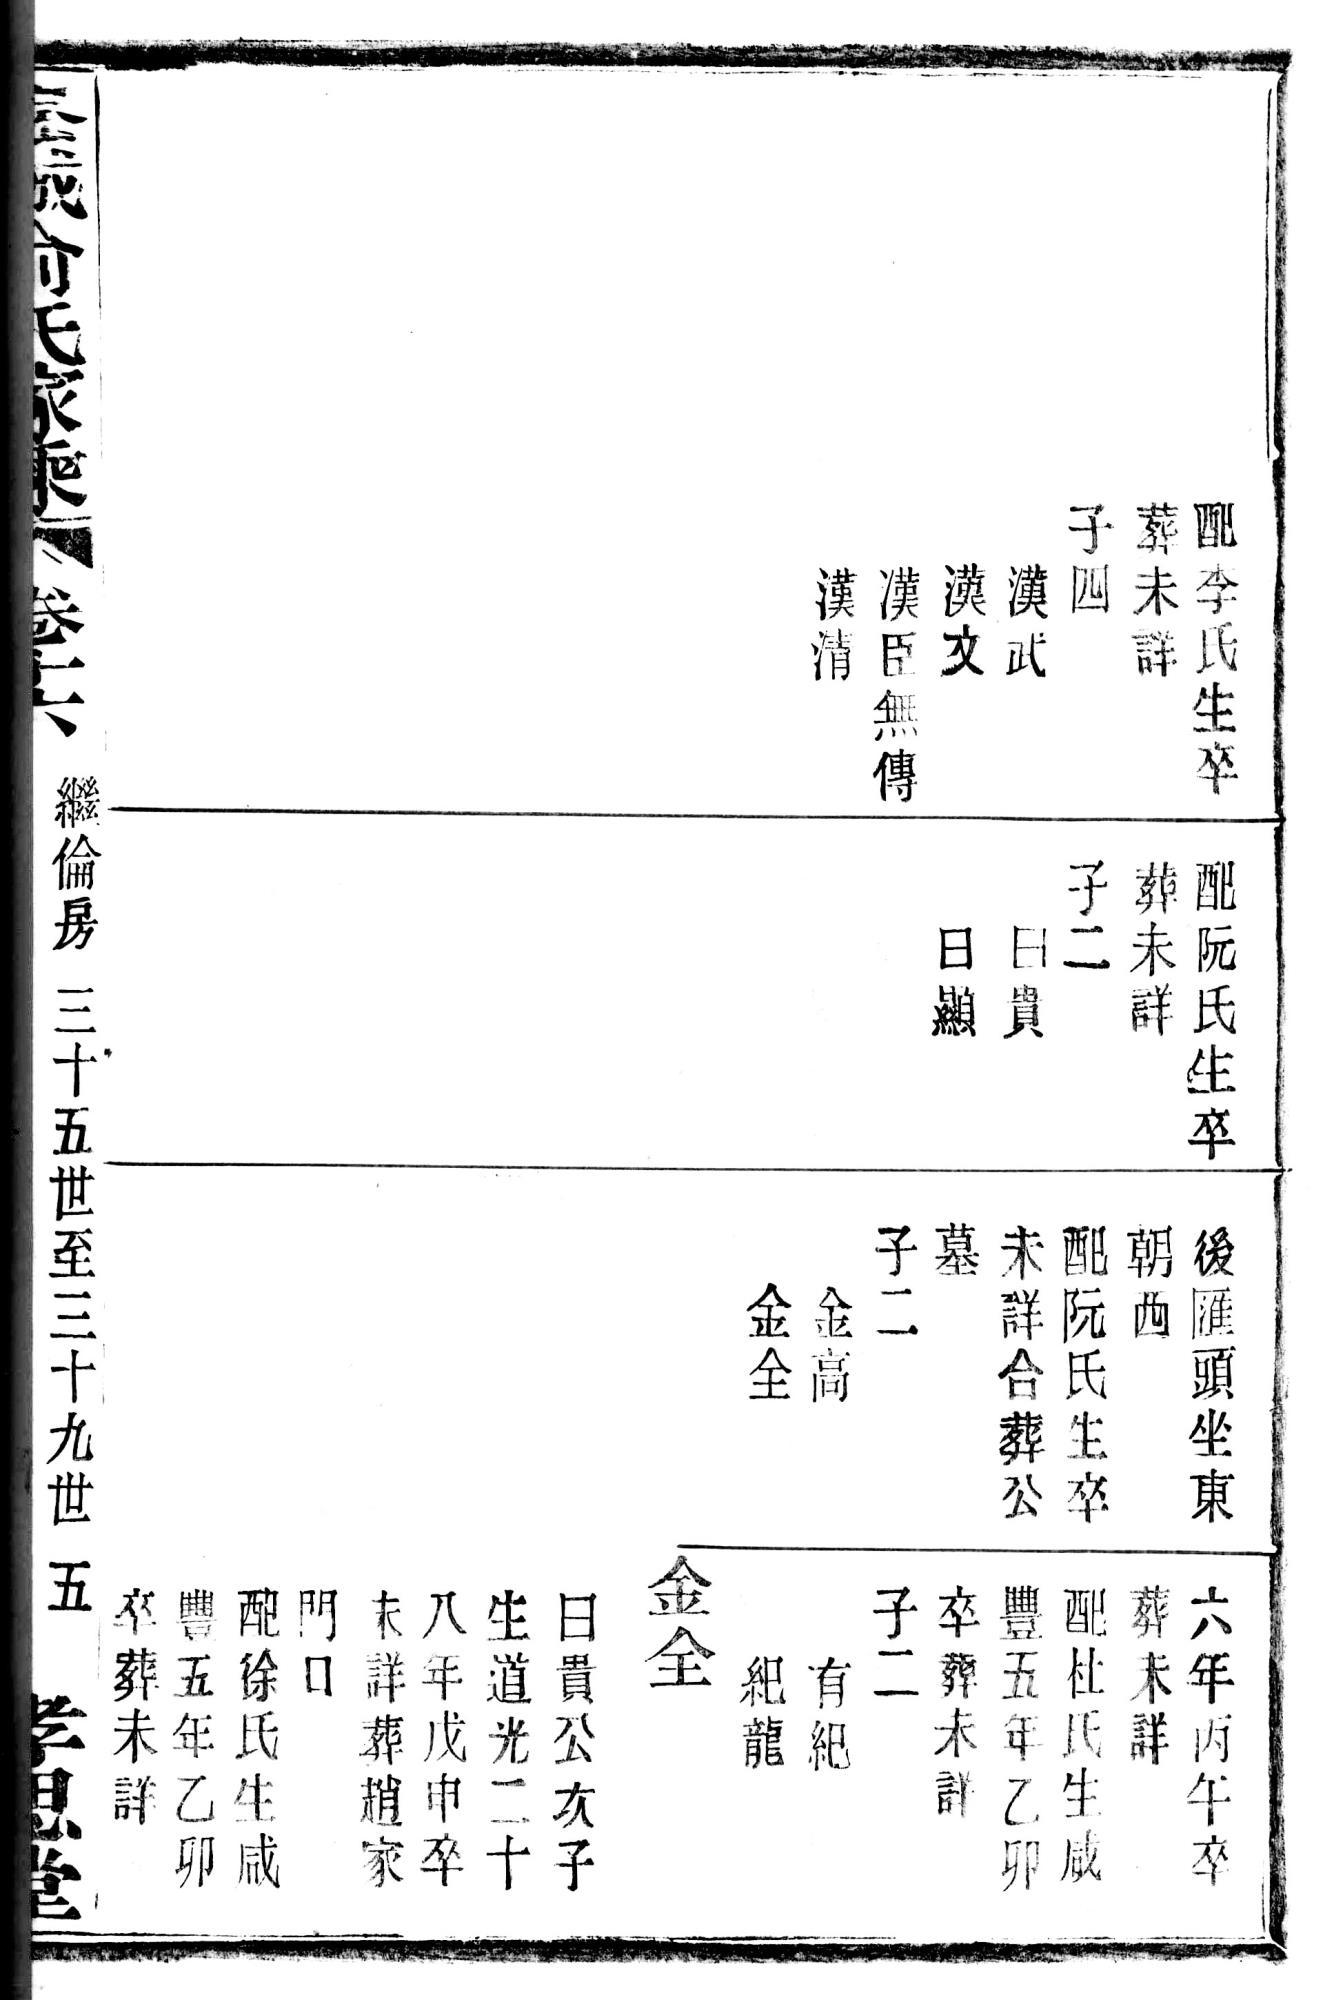 配李氏生卒
葬未詳
子四
漢武
漢文
漢臣無傳
漢清
配阮氏生卒
葬未詳
子二
日貴
日顯
後匯頭坐東
朝西
配阮氏生卒
未詳合葬公
墓
子二
金高
金全
六年丙午卒
葬未詳
配杜氏生咸
豐五年乙卯
卒葬未詳
子二
有紀
紀龍
金全
日貴公次子
生道光二十
八年戊申卒
未詳葬趙家
門口
配徐氏生咸
豐五年乙卯
卒葬未詳
俞氏家乘
卷十六
繼倫房
三十五世至三十九世
五
孝思堂